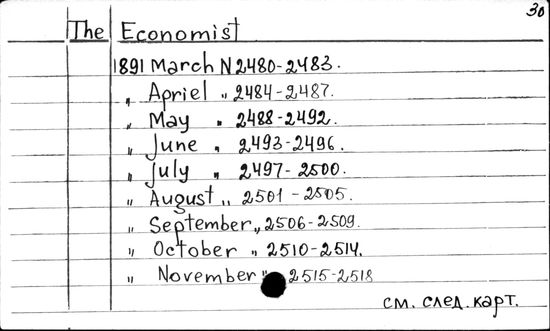 30
The Economist
1891 March N 2480-2483.
„ Apriel „ 2484-2487.
„ May „ 2488-2492.
„ June „ 2493-2496.
„ July „ 2497-2500.
„ August „ 2501-2505.
„ September „ 2506-2509.
„ October „ 2510-2514.
„ November „ 2515-2518
см. след. карт.